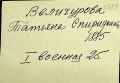 Величурова
Татьяна Спиридон
1895
I военная 25.